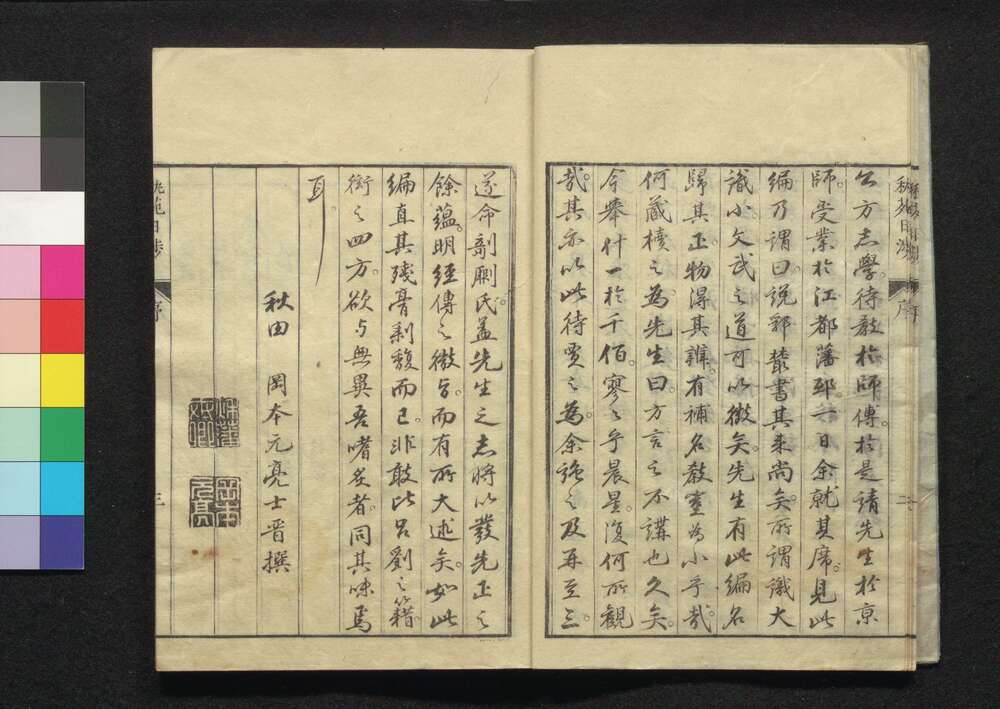 公方志學。待教於師傅。於是請先生於京
師。受業於江都藩邸。一日余就其席。見此
編乃謂曰。説郛叢書其來尚矣。所謂識大
識小。文武之道可以徴矣。先生有此編名
歸其正。物得其辨。有補名教。豈為小乎哉。
何藏櫝之為。先生曰。方言之不講也久矣。
今舉什一於千佰。寥々乎晨星。復何所觀
哉。其亦以此待賈之為。余強之及再至三。
遂命剞劂氏。蓋先生之志將以發先正之
餘蘊。明經傳之徴旨。而有所大述矣。如此
編直其殘膏剩馥而已。非敢比呂劉之籍。
衒之四方。欲与無異吾嗜炙者。同其味焉
耳
秋田 岡本元亮士晋撰
序
三